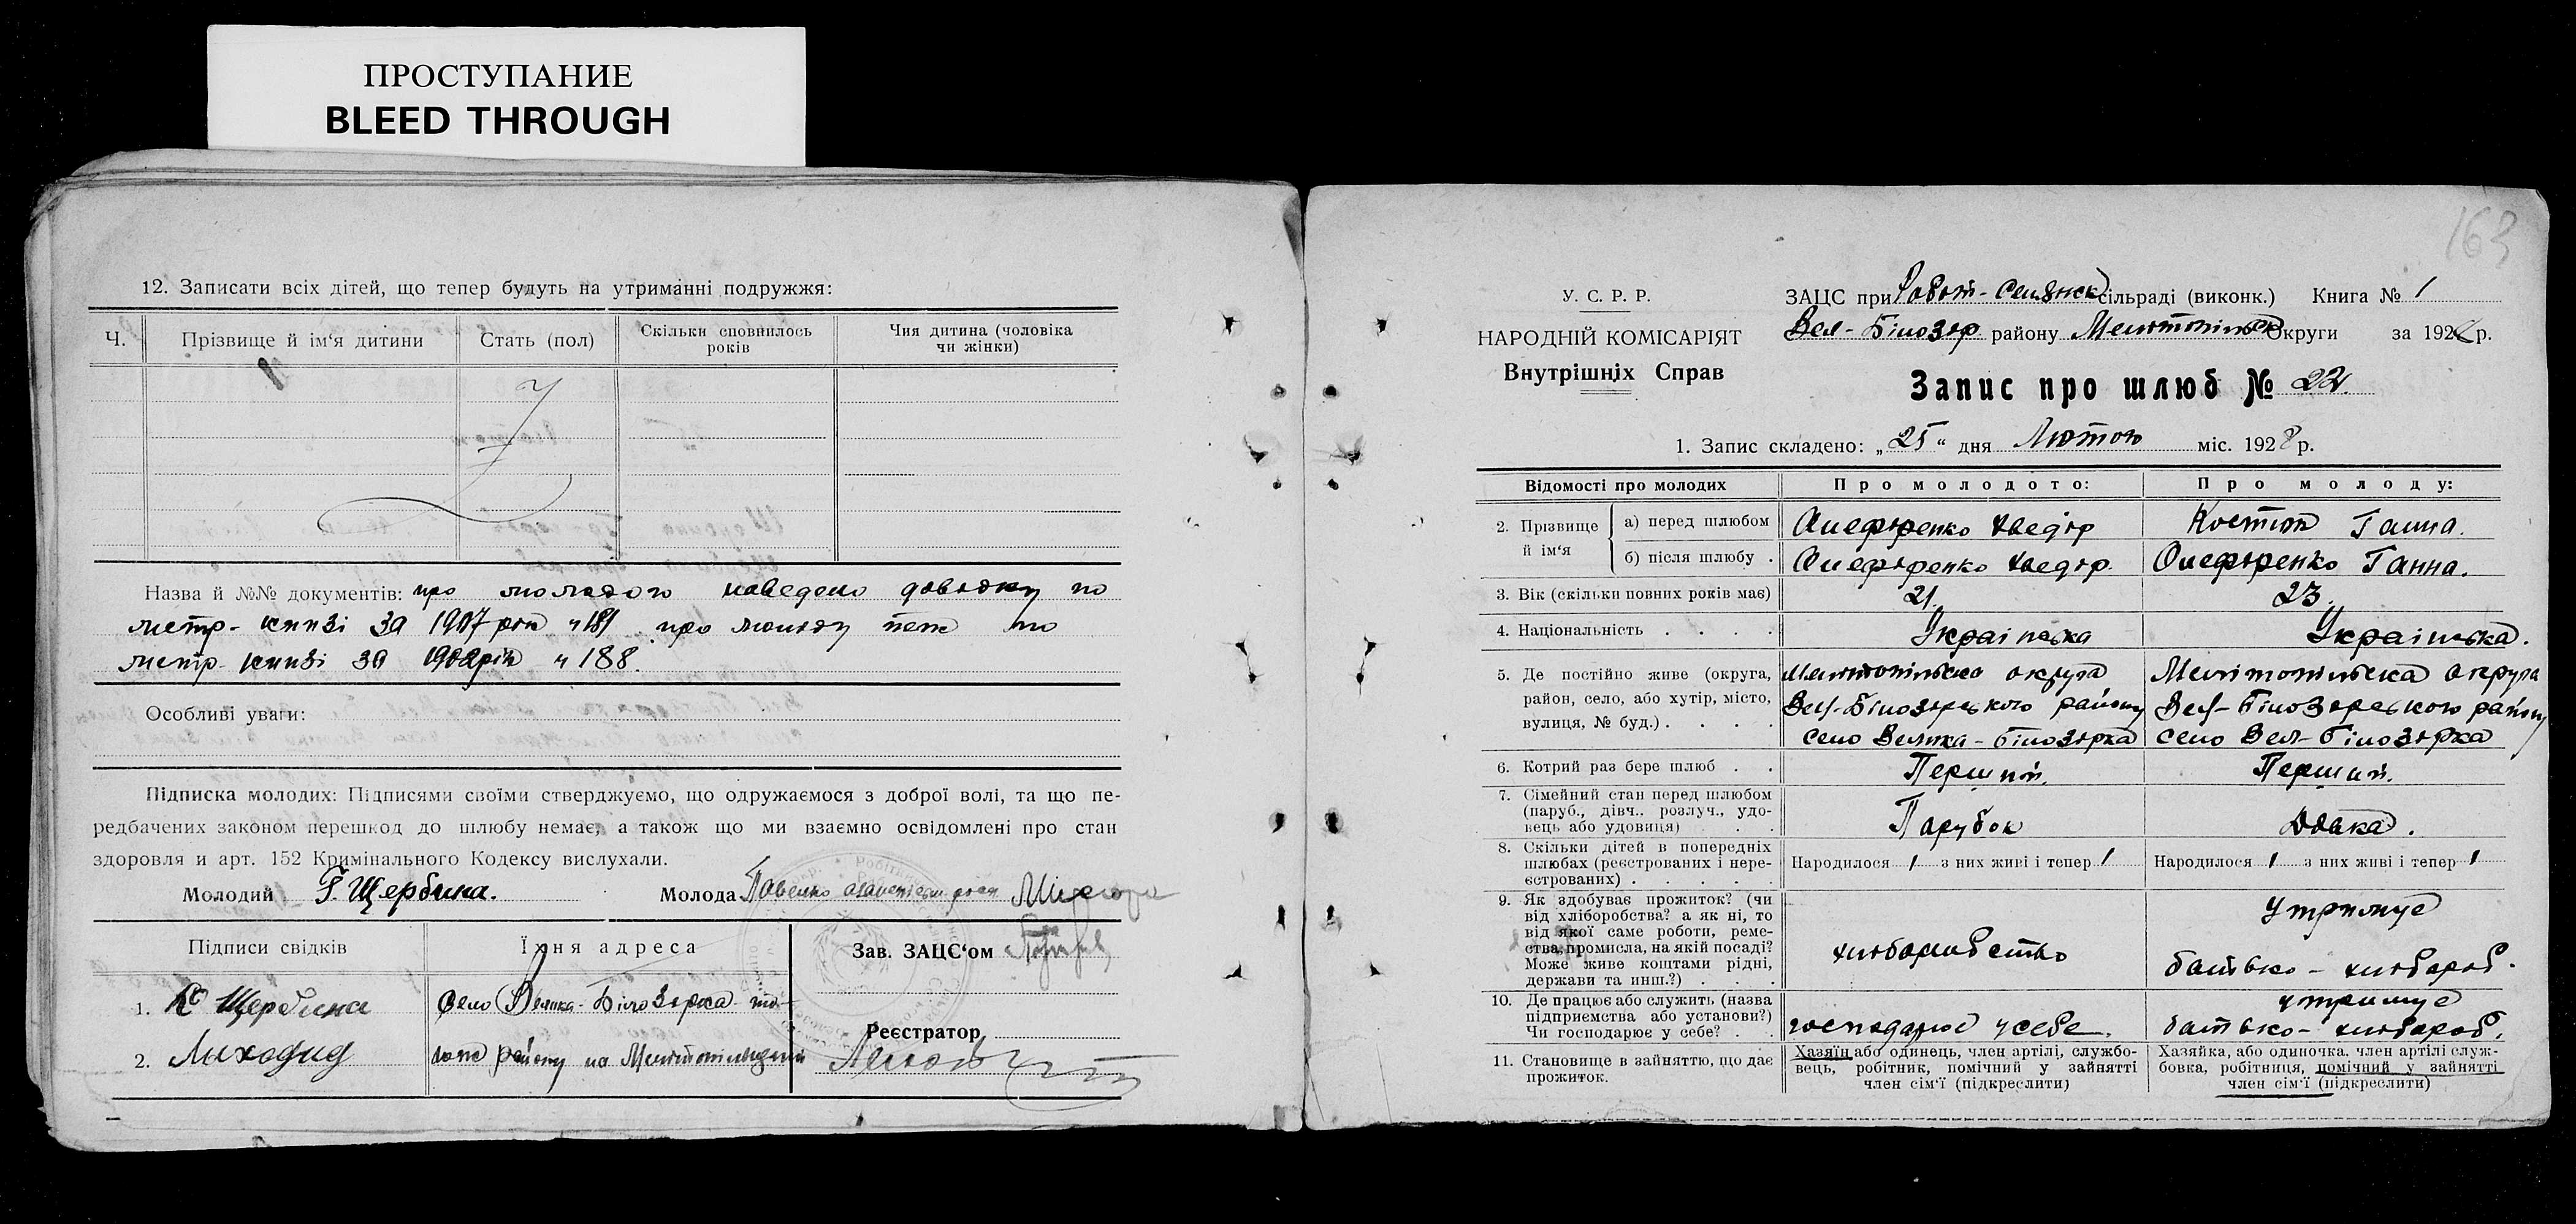 ПРОСТУПАНИЕ
BLEED THROUGH
12. Записати всіх дітей, що тепер будуть на утриманні подружжя:
Ч. Прізвище й ім‘я дитини Стать (пол) Скільки сповнилось років Чия дитина (чоловіка чи жінки)
Назва й №№ документів: про молодого наведено довідку по
метр- книзі за 1907 рік ч 181 про молоду теж по
метр- книзі за 1902 рік ч 188.
Особливі уваги:
Підписка молодих: Підписями своїми стверджуємо, що одружаємося з доброї волі, та що пе-
редбачених законом перешкод до шлюбу немає, а також що ми взаємно освідомлені про стан
здоровля и арт. 152 Кримінального Кодексу вислухали.
Молодий Г. Щербина. Молода
Підписи свідків Їхня адреса Зав. ЗАЦС‘ом
1. Щербина Село Велика-Білозорка
Реєстратор
2. Лиходид району на Мелітопільщині
163
У. С. Р. Р.
НАРОДНІЙ КОМІСАРІЯТ
Внутрішніх Справ
ЗАЦС при Робот-Селянськ сільраді (виконк.) Книга № 1
Вел-Білозор району Мелітопільськ Округи за 1928 р.
Запис про шлюб № 22.
1. Запис складено: „25“ дня Лютого міс. 1928 р.
Відомості про молодих Про молодого: Про молоду:
2. Прізвище й ім‘я а) перед шлюбом Олефіренко Хведір Костюк Ганна.
б) після шлюбу Олефіренко Хведір. Олефіренко Ганна.
3. Вік (скільки повних років має) 21. 23.
4. Національність Українська Українська.
5. Де постійно живе (округа, Мелітопільська округа Мелітопільська округа
район, село, або хутір, місто, Вел-Білозорського району Вел-Білозорського району
вулиця, № буд.) село Велика-Білозорка село Вел-Білозорка
6. Котрий раз бере шлюб Перший. Перший.
7. Сімейний стан перед шлюбом
(паруб., дівч.. розлуч., удо-
вець або удовиця) Парубок Дівка.
8. Скільки дітей в попередніх
шлюбах (реєстрованих і нере-
єстрованих) Народилося / з них живі і тепер / Народилося / з них живі і тепер /
9. Як здобуває прожиток? (чи
від хліборобства? а як ні, то
від якої саме роботи, реме-
ства, промисла, на якій посаді?
Може живе коштами рідні,
держави та инш.?) хліборобство утримує батько-хлібороб.
10. Де працює або служить (назва
підприємства або установи?)
Чи господарює у себе? господарює у себе. утримує батько-хлібороб.
11. Становище в зайняттю, що дає
прожиток.
Хазяїн або одинець, член артілі, службо-
вець, робітник, помічний у зайнятті
член сім‘ї (підкреслити)
Хазяйка, або одиночка, член артілі служ-
бовка, робітниця, помічний у зайнятті
член сім‘ї (підкреслити)